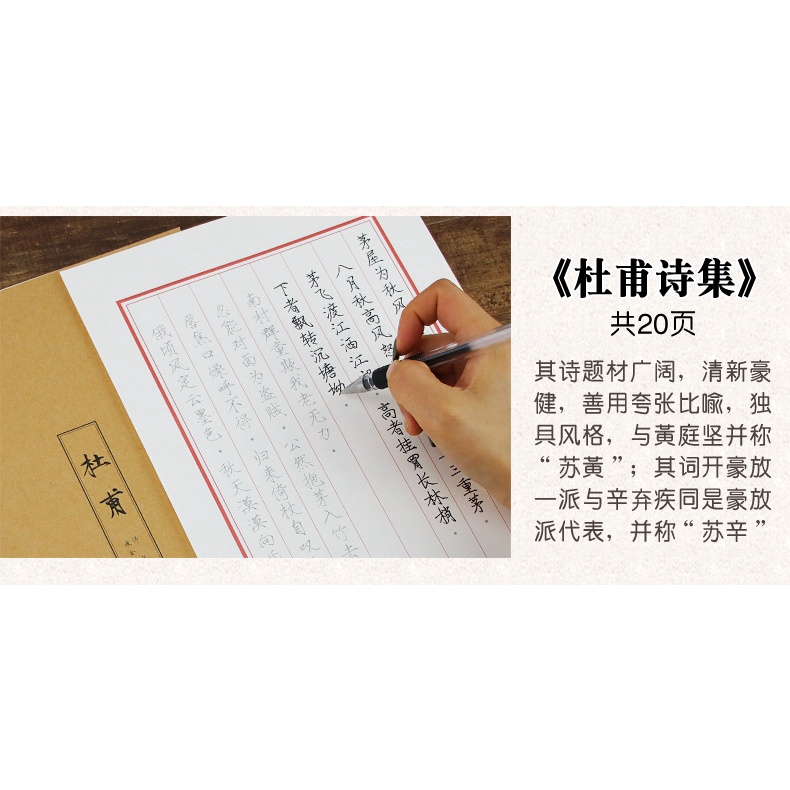 《杜甫诗集》
共20页
其诗题材广阔，清新豪
健，善用夸张比喻，独
具风格，与黃庭坚并称
“苏黃”；其词开豪放
一派与辛弃疾同是豪放
派代表，并称“苏辛”
茅屋为秋风
八月秋高风怒
三重茅
茅飞渡江洒江
高者挂罥长林梢
下者飘转沉塘坳
南村群童欺我老无力
忍能对面为盗贼
公然抱茅入竹去
唇焦口燥呼不得
归来倚杖自叹
俄顷风定云墨色
秋天漠漠向
杜甫